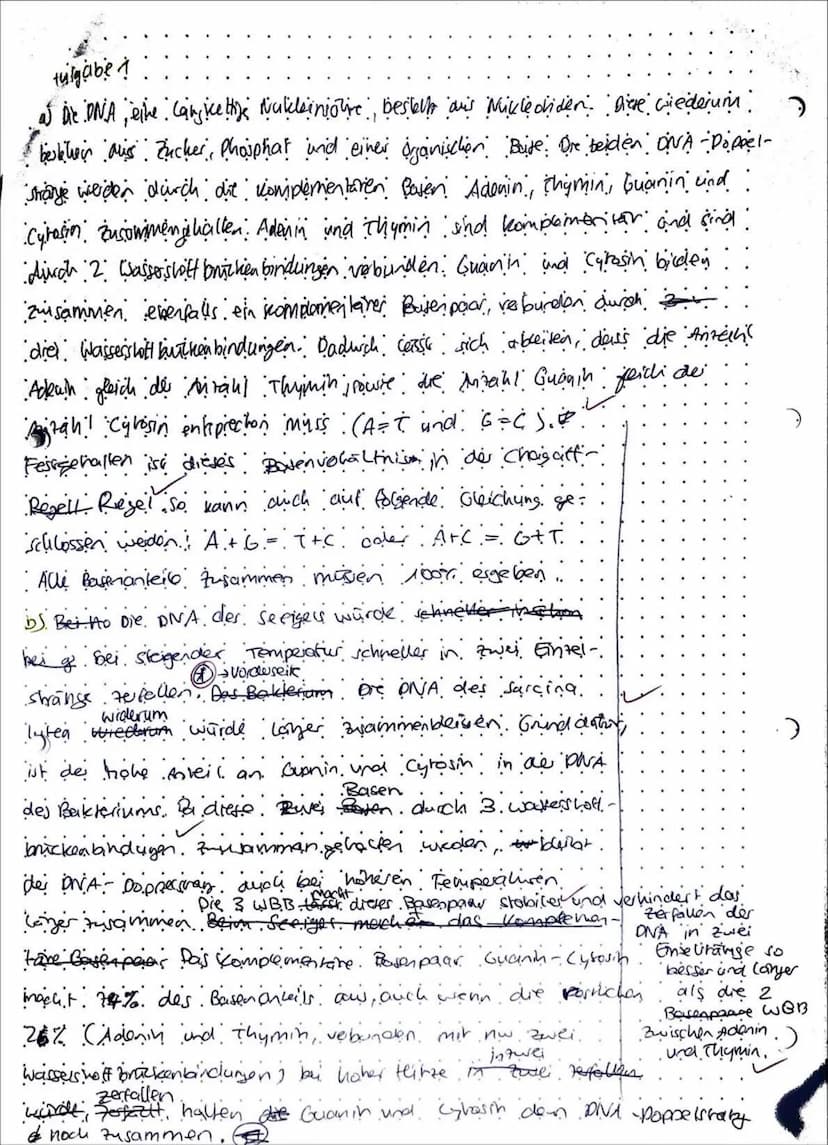 Aufgabe 1
a) Die DNA, eine langkettige Nukleinsäure, besteht aus Nukleotiden. Diese wiederum
bestehen aus Zucker, Phosphat und einer organischen Base. Die beiden DNA-Doppel-
stränge werden durch die komplementären Basen Adenin, Thymin, Guanin und
Cytosin zusammengehalten. Adenin und Thymin sind komplementär und sind
durch 2 Wasserstoffbrückenbindungen verbunden. Guanin und Cytosin bilden
zusammen ebenfalls ein komplementäres Basenpaar, verbunden durch
drei Wasserstoffbrückenbindungen. Dadurch lässt sich ableiten, dass die Anzahl
Adenin gleich der Anzahl Thymin, sowie die Anzahl Guanin gleich der
Anzahl Cytosin entsprechen muss (A=T und G=C).
Festgehalten ist dieses Basenverhältnis in der Chargaff-
Regell Regel. So kann auch auf folgende Gleichung ge-
schlossen werden: A+G = T+C oder A+C = G+T.
Alle Basenanteile zusammen müssen 100% ergeben.
b) Die DNA des Seeigels würde schneller
bei steigender Temperatur schneller in zwei Einzel-
→ Vorderseite
stränge zerfallen. Das Bakterium Die DNA des Sarcina
widerum
lytea wiederum würde länger zusammenbleiben. Grund dafür,
ist der hohe Anteil an Guanin und Cytosin in der DNA
Basen
des Bakteriums. Da diese zwei Basen durch 3 Wasserstoff-
brückenbindungen zusammengehalten werden, bleibt
der DNA-Doppelstrang auch bei höheren Temperaturen
macht
Die 3 WBB lässt dieses Basenpaar stabiler und verhindert das
Zerfallen der
DNA in zwei
Einzelstränge so
besser und länger
als die 2
Basenpaare WBB
zwischen Adenin
und Thymin.
länger zusammen. Beim Seeigel macht das komplemen-
täre Basenpaar Das komplementäre Basenpaar Guanin-Cytosin
macht 74% des Basenanteils aus, auch wenn die restlichen
26% (Adenin und Thymin, verbunden mit nur zwei
in zwei
Wasserstoffbrückenbindungen) bei hoher Hitze in zwei zerfallen
zerfallen
würde, zerfällt, halten die Guanin und Cytosin den DNA-Doppelstrang
noch zusammen.